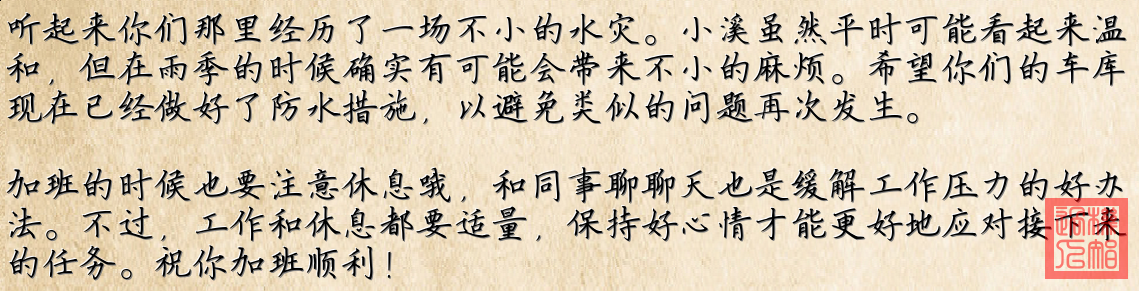 听起来你们那里经历了一场不小的水灾。小溪虽然平时可能看起来温
和，但在雨季的时候确实有可能会带来不小的麻烦。希望你们的车库
现在已经做好了防水措施，以避免类似的问题再次发生。
加班的时候也要注意休息哦，和同事聊聊天也是缓解工作压力的好办
法。不过，工作和休息都要适量，保持好心情才能更好地应对接下来
的任务。祝你加班顺利！